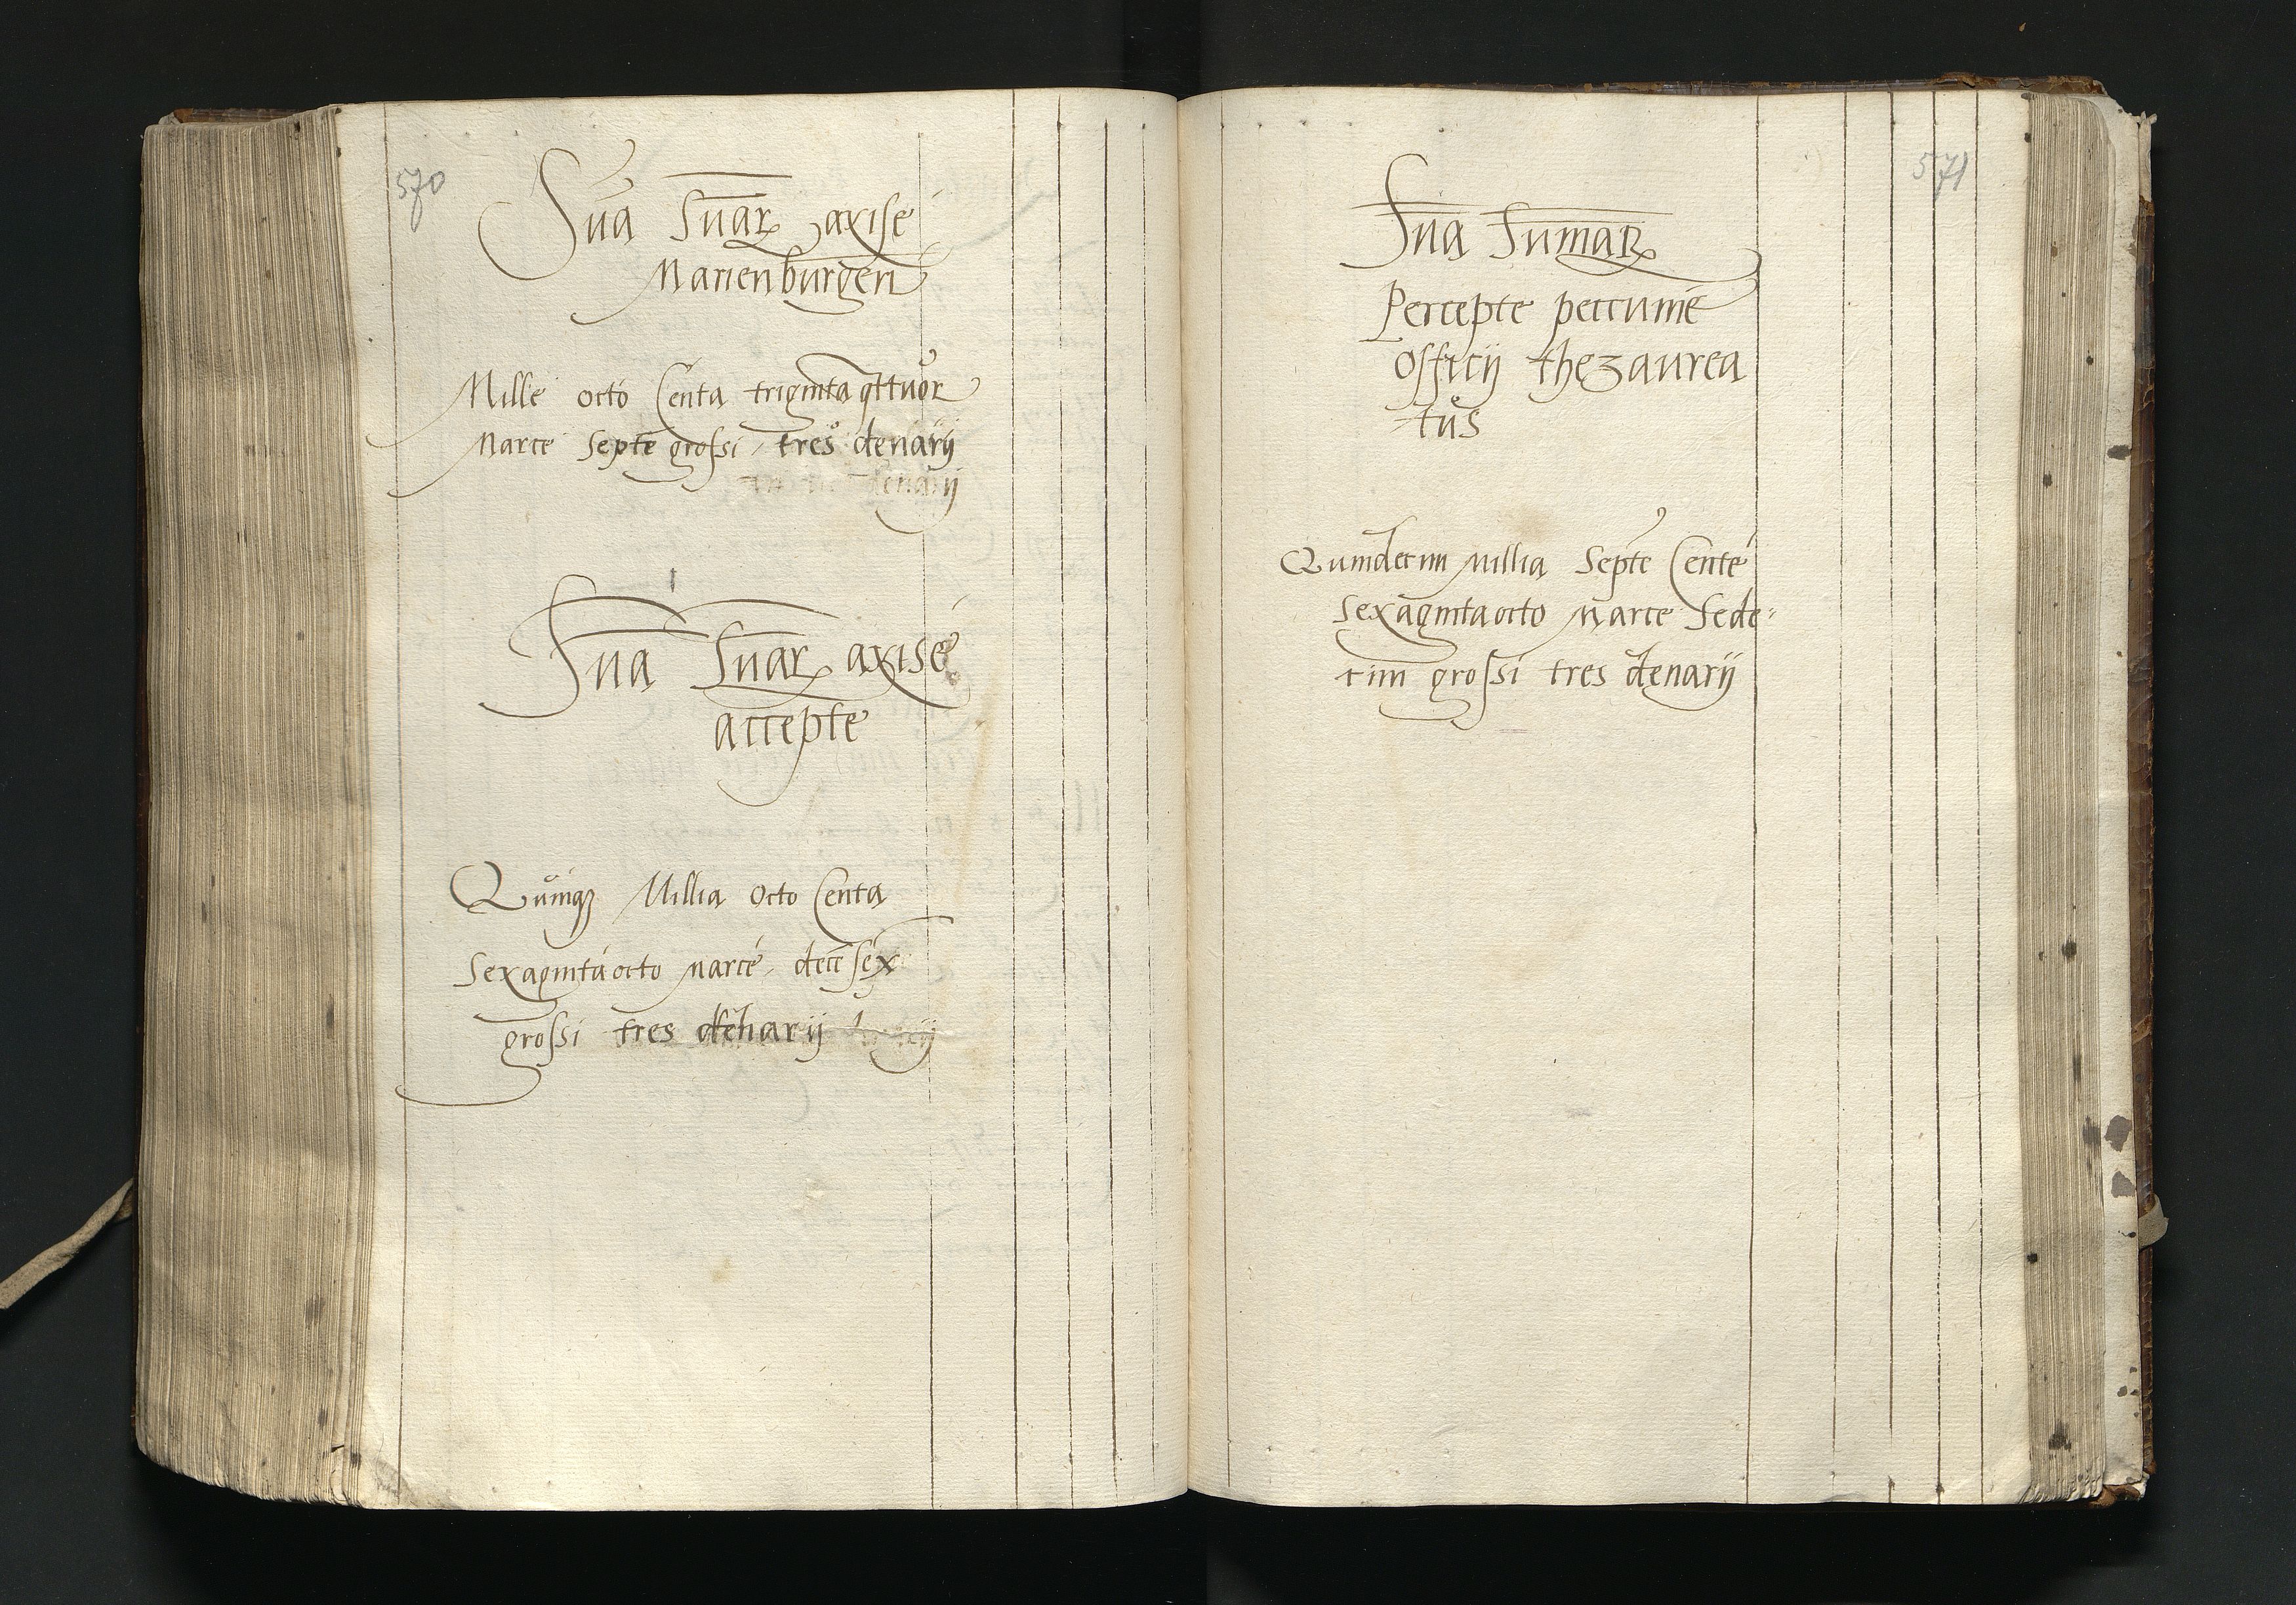 570
Su̅a Su̅aꝝ axise
Marienburgen̅
Mille octo Centa triginta qttuor
Marce Septe̅ grossi, tres denarij
denarij
Su̅a Su̅aꝝ axise
accepte
Quinqꝫ Millia octo Centa
Sexaginta octo marce, dece̅ sex
grossi tres denarij
571
Su̅a Su̅maꝝ
Percepte peccunie
officij thezaurea
tus
Quindecim millia Septe̅ Cente̅
sexaginta octo Marce Sede-
cim grossi tres denarij